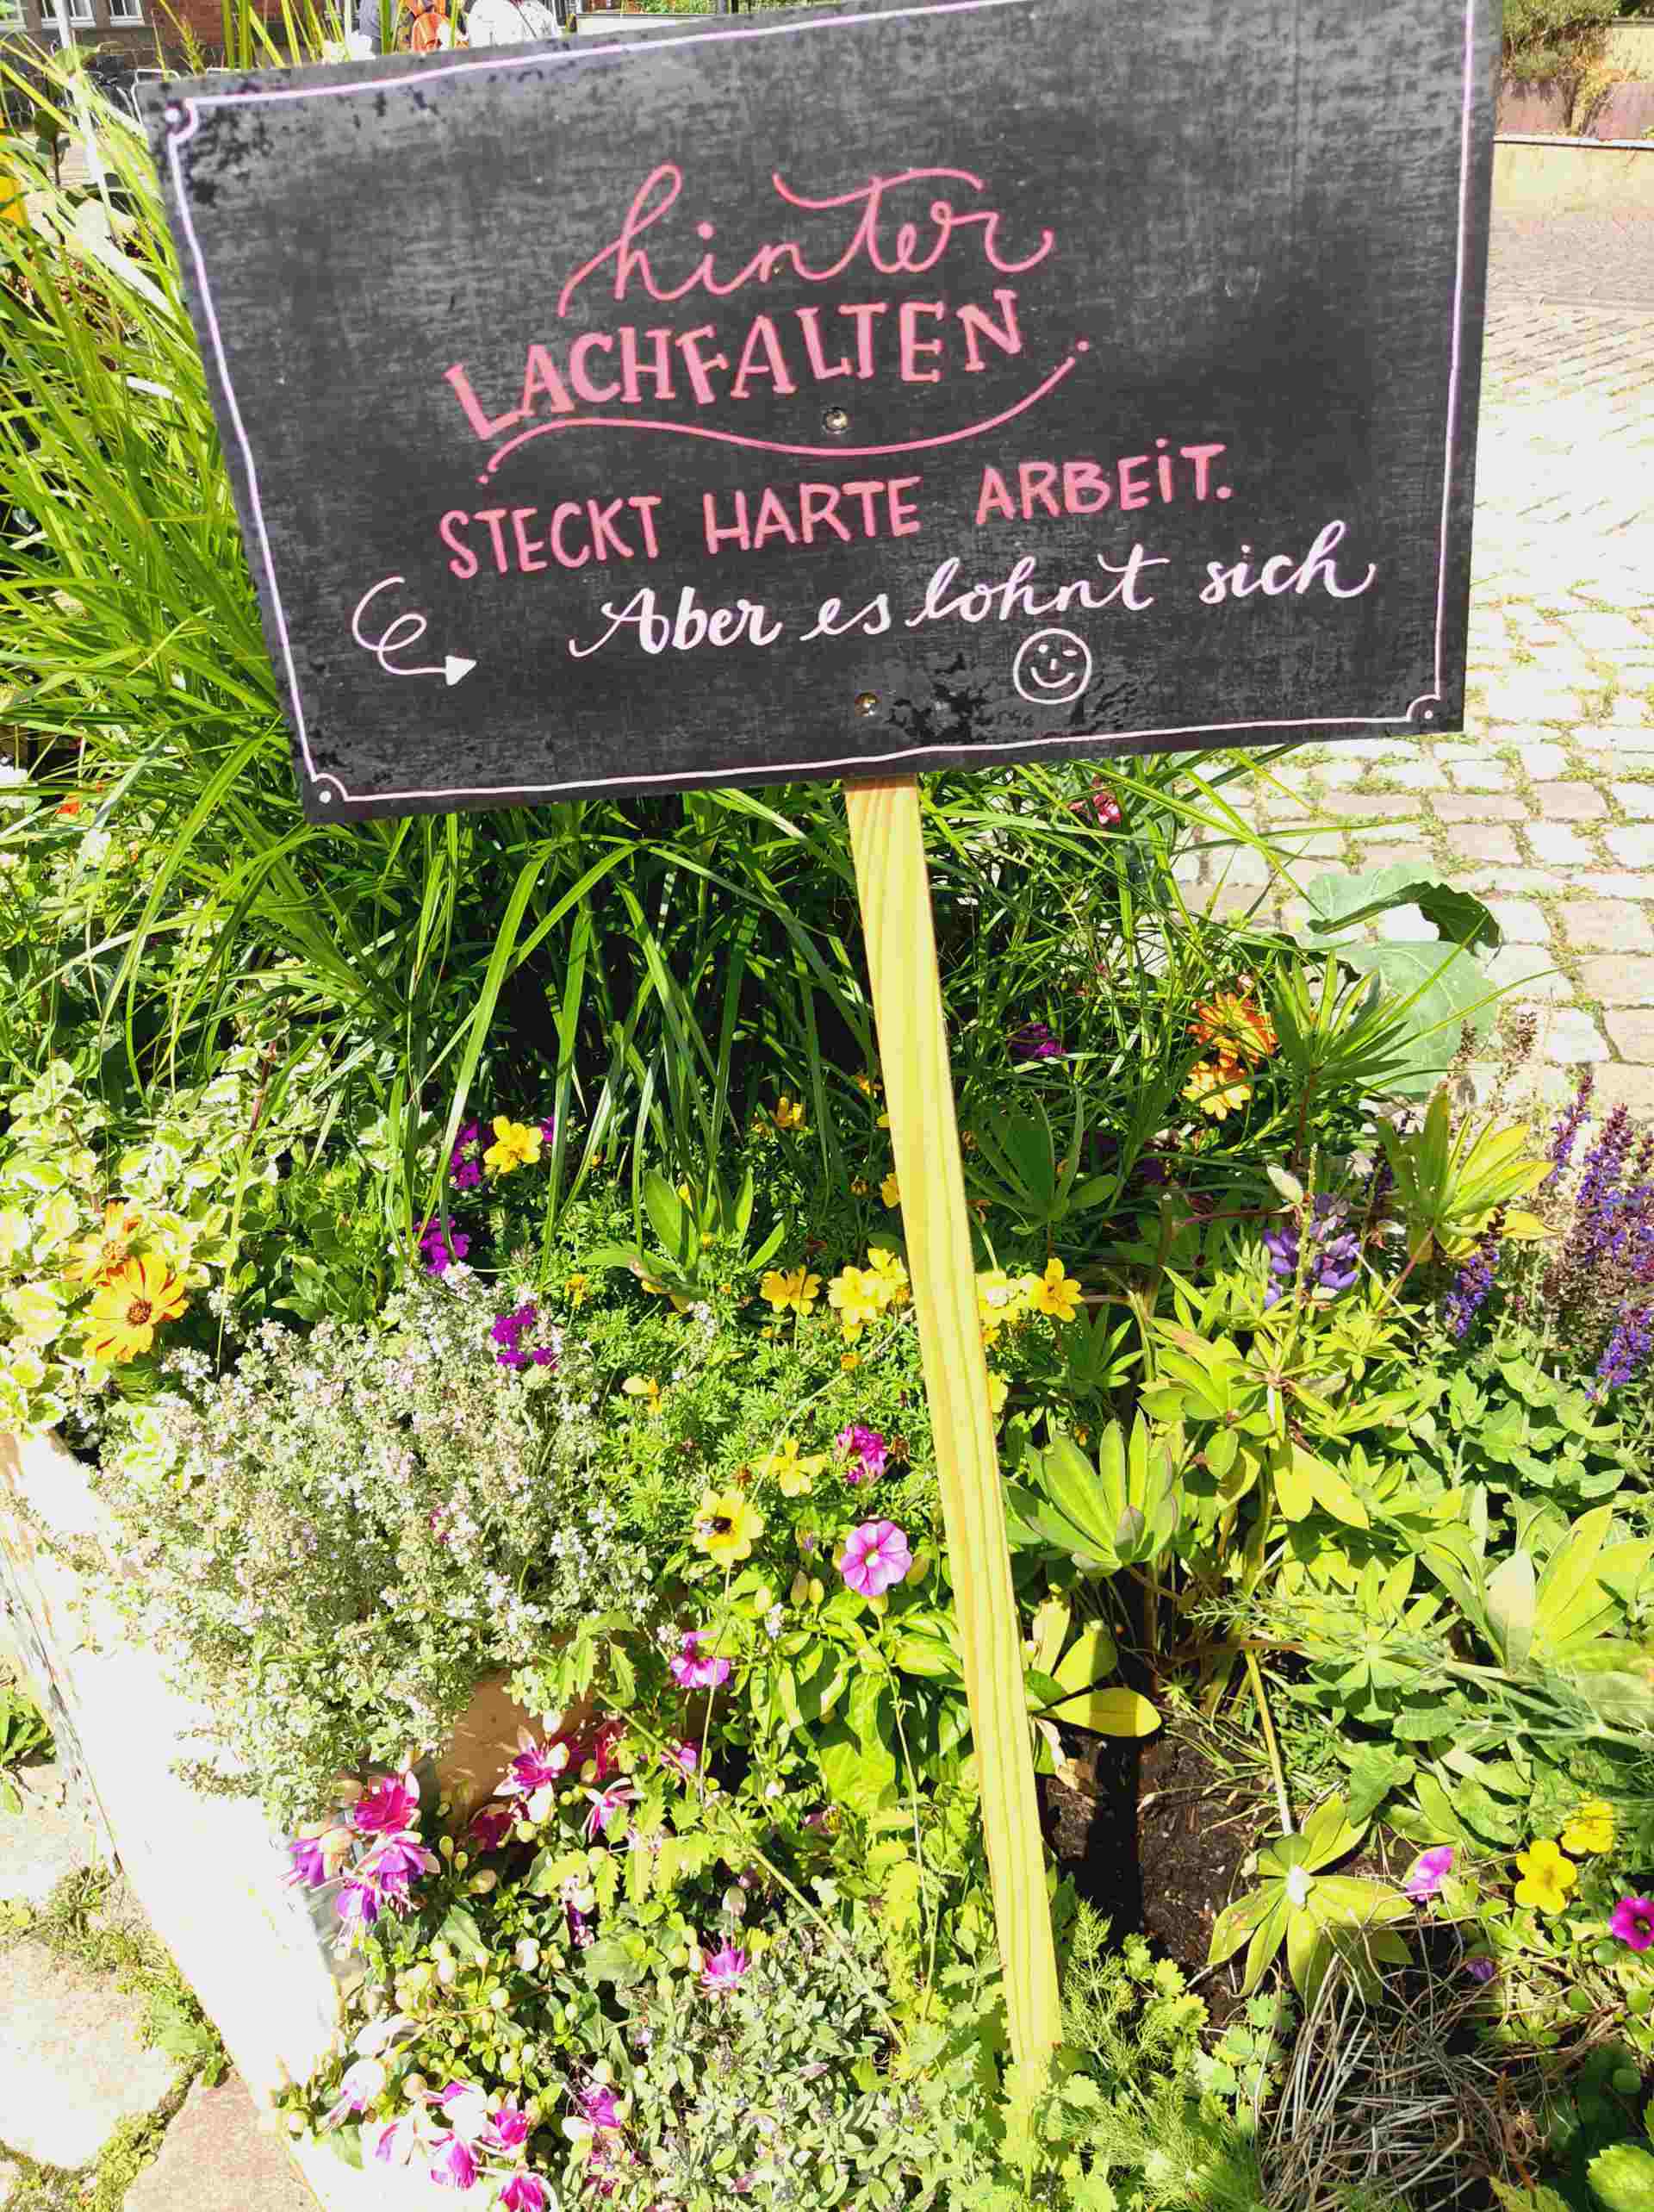 hinter
LACHFALTEN
STECKT HARTE ARBEIT.
Aber es lohnt sich